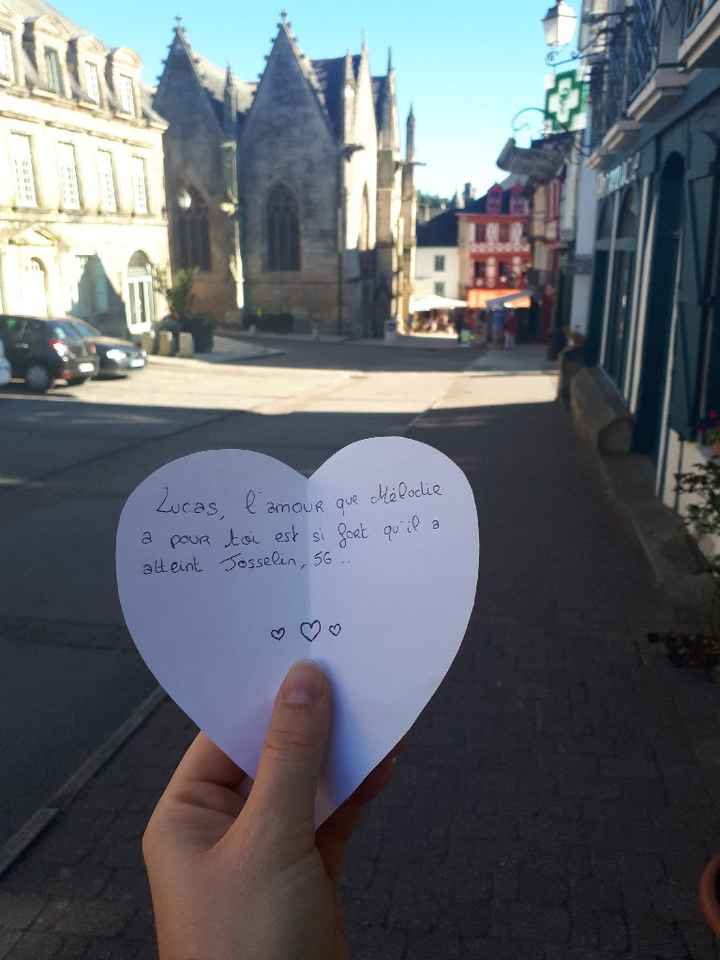 Lucas, l'amour que Mélodie
a pour toi est si fort qu'il a
atteint Josselin, 56 ..